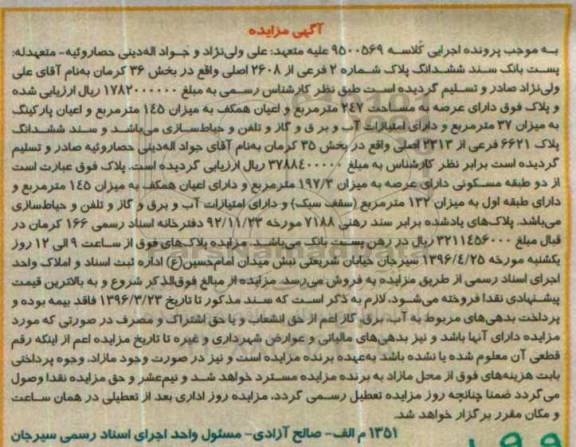 آگهی مزایده
به موجب پرونده اجرایی کلاسه ۹۵۰۰۵۶۹ علیه متعهد: علی ولی‌نژاد و جواد اله‌دینی حصاروئیه- متعهدله:
پست بانک سند ششدانگ پلاک شماره ۲ فرعی از ۲۶۰۸ اصلی واقع در بخش ۳۶ کرمان به‌نام آقای علی
ولی‌نژاد صادر و تسلیم گردیده است طبق نظر کارشناس رسمی به مبلغ ۱۷۸۲۰۰۰۰۰۰ ریال ارزیابی شده
و پلاک فوق دارای عرصه به مساحت ۲۴۷ مترمربع و اعیان همکف به میزان ۱۴۵ مترمربع و اعیان پارکینگ
به میزان ۳۷ مترمربع و دارای امتیازات آب و برق و گاز و تلفن و حیاط‌سازی می‌باشد و سند ششدانگ
پلاک ۶۶۲۱ فرعی از ۲۳۱۳ اصلی واقع در بخش ۳۵ کرمان به‌نام آقای جواد اله‌دینی حصاروئیه صادر و تسلیم
گردیده است برابر نظر کارشناس به مبلغ ۳۷۸۸۴۰۰۰۰۰ ریال ارزیابی گردیده است. پلاک فوق عبارت است
از دو طبقه مسکونی دارای عرصه به میزان ۱۹۷/۳ مترمربع و دارای اعیان همکف به میزان ۱۴۵ مترمربع و
دارای طبقه اول به میزان ۱۳۲ مترمربع (سقف سبک) و دارای امتیازات آب و برق و گاز و تلفن و حیاط‌سازی
می‌باشد. پلاک‌های یادشده برابر سند رهنی ۷۱۸۸ مورخه ۹۲/۱۱/۲۳ دفترخانه اسناد رسمی ۱۶۶ کرمان در
قبال مبلغ ۳۲۱۱۴۵۶۰۰۰ ریال در رهن پست بانک می‌باشد. مزایده پلاک‌های فوق از ساعت ۹ الی ۱۲ روز
یکشنبه مورخه ۱۳۹۶/۴/۲۵ سیرجان خیابان شریعتی نبش میدان امام‌حسین(ع) اداره ثبت اسناد و املاک واحد
اجرای اسناد رسمی از طریق مزایده به فروش می‌رسد. مزایده از مبالغ فوق‌الذکر شروع و به بالاترین قیمت
پیشنهادی نقدا فروخته می‌شود. لازم به ذکر است که سند مذکور تا تاریخ ۱۳۹۶/۳/۲۳ فاقد بیمه بوده و
پرداخت بدهی‌های مربوط به آب، برق، گاز اعم از حق انشعاب و یا حق اشتراک و مصرف در صورتی که مورد
مزایده دارای آنها باشد و نیز بدهی‌های مالیاتی و عوارض شهرداری و غیره تا تاریخ مزایده اعم از اینکه رقم
قطعی آن معلوم شده یا نشده باشد به‌عهده برنده مزایده است و نیز در صورت وجود مازاد، وجوه پرداختی
بابت هزینه‌های فوق از محل مازاد به برنده مزایده مسترد خواهد شد و نیم‌عشر و حق مزایده نقدا وصول
می‌گردد ضمنا چنانچه روز مزایده تعطیل رسمی گردد، مزایده روز اداری بعد از تعطیلی در همان ساعت
و مکان مقرر برگزار خواهد شد.
۱۳۵۱ م الف- صالح آزادی- مسئول واحد اجرای اسناد رسمی سیرجان